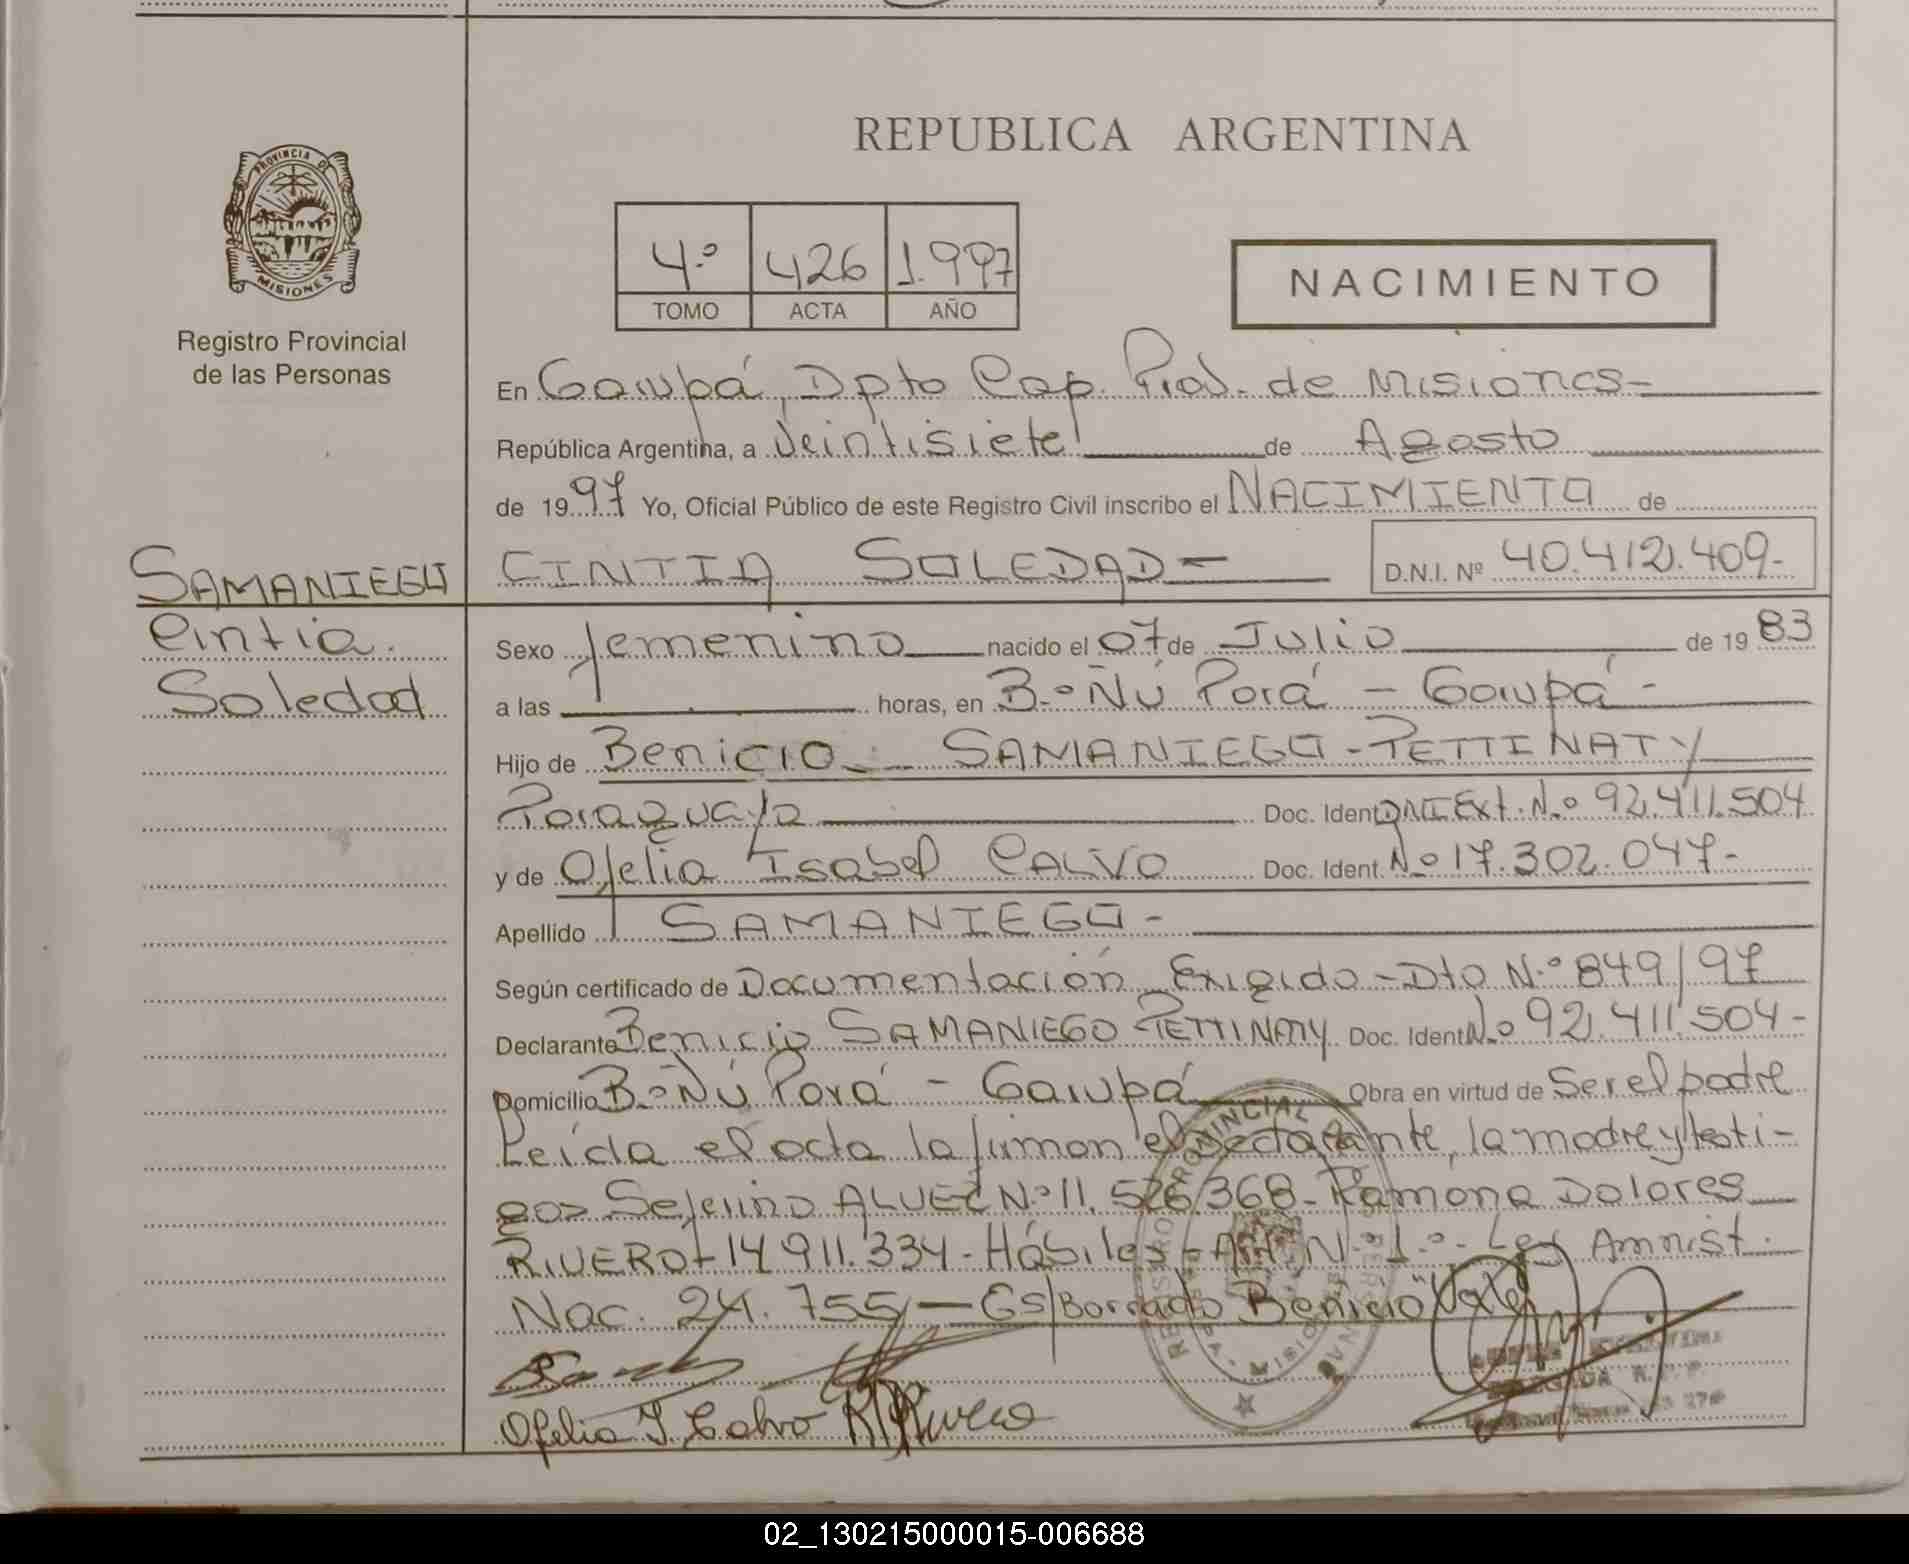 REPUBLICA ARGENTINA
PROVINCIA DE
MISIONES
Registro Provincial
de las Personas
4º 426 1.997
TOMO ACTA AÑO
NACIMIENTO
En Garupá, Dpto Cap. Prov. de Misiones-
República Argentina, a Veintisiete de Agosto
de 1997 Yo, Oficial Público de este Registro Civil inscribo el NACIMIENTO de
SAMANIEGO
Cintia.
Soledad
CINTIA SOLEDAD- D.N.I. Nº 40.412.409-
Sexo femenino nacido el 07 de Julio de 1983
a las horas, en B.º Ñú Porá - Garupá-
Hijo de Benicio SAMANIEGO-PETTINATY
Paraguayo Doc. Ident DNI Ext. N.º 92.411.504
y de Ofelia Isabel CALVO Doc. Ident. Nº 17.302.047-
Apellido SAMANIEGO-
Según certificado de Documentación Exigida-Dto N.º 849/97
Declarante Benicio SAMANIEGO PETTINATY Doc. Ident Nº 92.411.504-
Domicilio B.º Ñú Porá - Garupá Obra en virtud de Ser el padre
Leída el acta la firman el declarante, la madre y testi-
gos Seferino N.º 11.526.368-Ramona Dolores
RIVERO-14.911.334-Hábiles- Art. N.º 1.º- Ley Amnist.
Nac. 24.755-CS/Borrado Benicio "Vale"
Ofelia I Calvo Rivero
REGISTRO PROVINCIAL
MISIONES
02_130215000015-006688